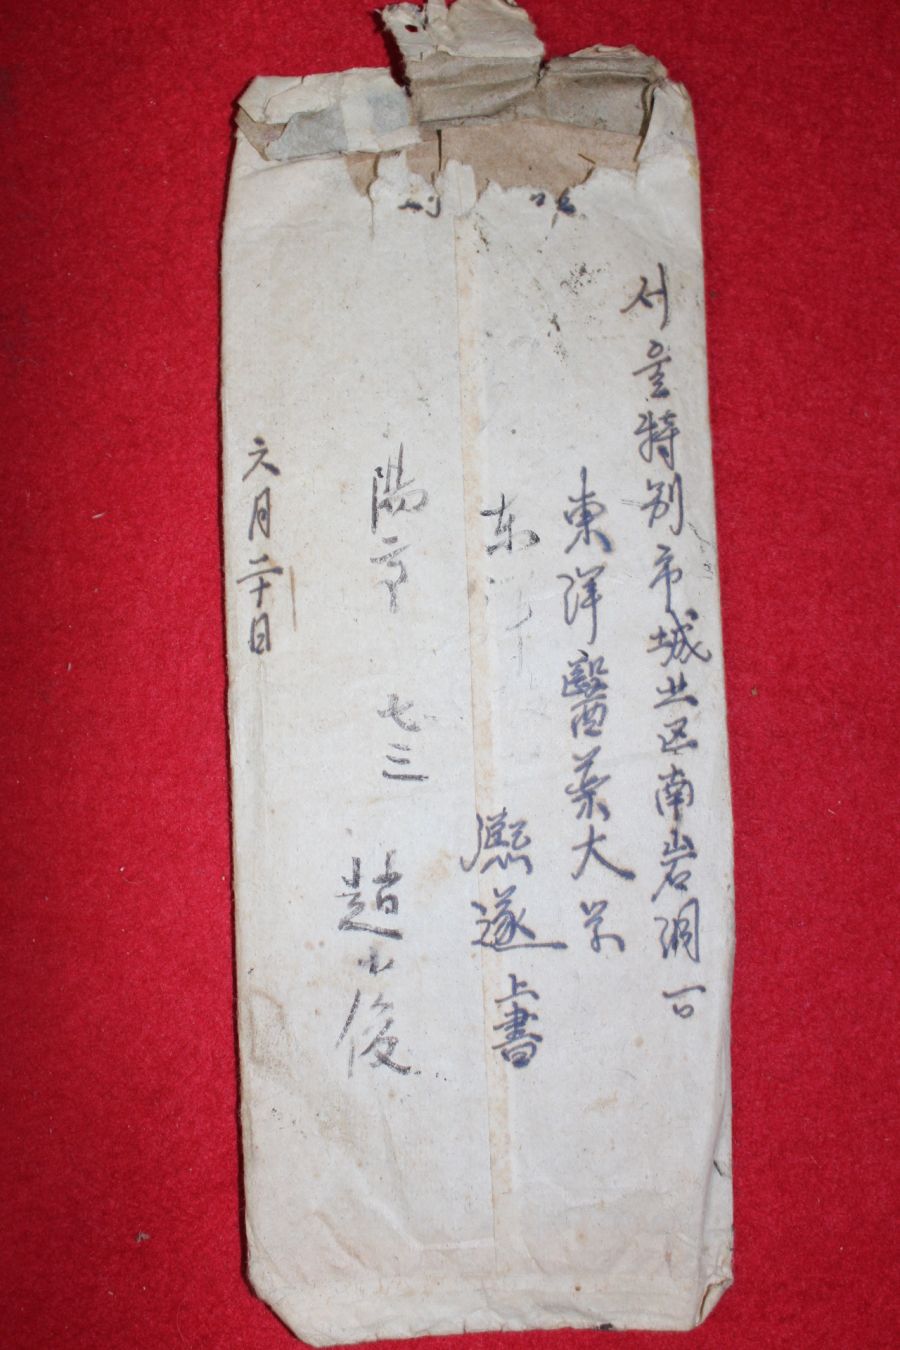 서울特別市城北区南岩洞一
東洋醫薬大学
东
熙遂上書
陽亭 七三
趙 俊
六月二十日